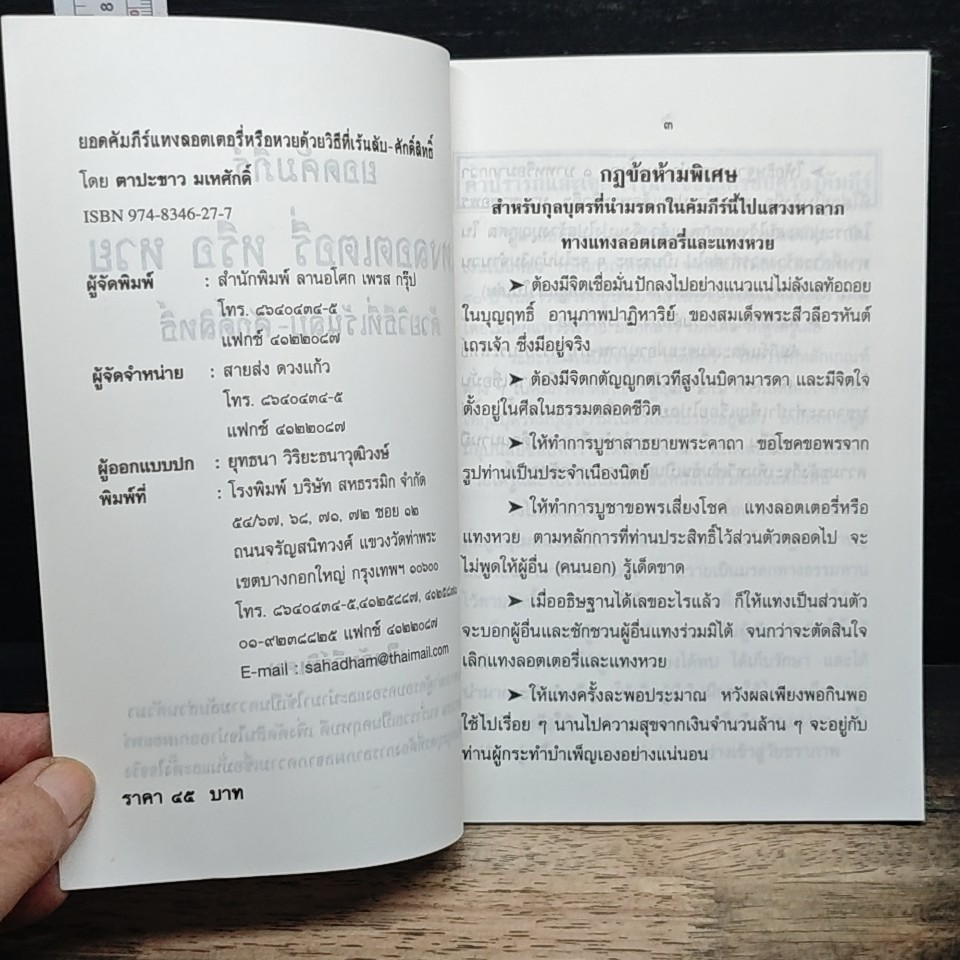 8
ยอดคัมภีร์แทงลอตเตอรี่หรือหวยด้วยวิธีที่เร้นลับ-ศักดิ์สิทธิ์
โดย ตาปะขาว มเหศักดิ์
ISBN 974-8346-27-7
ผู้จัดพิมพ์ : สำนักพิมพ์ ลานอโศก เพรส กรุ๊ป
โทร. ๘๖๔๐๔๓๔-๕
แฟกซ์ ๔๑๒๒๐๘๗
ผู้จัดจำหน่าย : สายส่ง ดวงแก้ว
โทร. ๘๖๔๐๔๓๔-๕
แฟกซ์ ๔๑๒๒๐๘๗
ผู้ออกแบบปก : ยุทธนา วิริยะธนาวุฒิวงษ์
พิมพ์ที่ : โรงพิมพ์ บริษัท สหธรรมิก จำกัด
๕๔/๖๗, ๖๘, ๗๑, ๗๒ ซอย ๑๒
ถนนจรัญสนิทวงศ์ แขวงวัดท่าพระ
เขตบางกอกใหญ่ กรุงเทพฯ ๑๐๖๐๐
โทร. ๘๖๔๐๔๓๔-๕,๔๑๒๕๘๘๗,
๐๑-๙๒๓๘๘๒๕ แฟกซ์ ๔๑๒๒๐๘๗
E-mail : sahadham@thaimail.com
ราคา ๔๕ บาท
๓
กฎข้อห้ามพิเศษ
สำหรับกุลบุตรที่นำมรดกในคัมภีร์นี้ไปแสวงหาลาภ
ทางแทงลอตเตอรี่และแทงหวย
➤ ต้องมีจิตเชื่อมั่นปักลงไปอย่างแนวแน่ไม่ลังเลท้อถอย
ในบุญฤทธิ์ อานุภาพปาฏิหาริย์ ของสมเด็จพระสีวลีอรหันต์
เถรเจ้า ซึ่งมีอยู่จริง
➤ ต้องมีจิตกตัญญูกตเวทีสูงในบิดามารดา และมีจิตใจ
ตั้งอยู่ในศีลในธรรมตลอดชีวิต
➤ ให้ทำการบูชาสาธยายพระคาถา ขอโชคขอพรจาก
รูปท่านเป็นประจำเนืองนิตย์
➤ ให้ทำการบูชาขอพรเสี่ยงโชค แทงลอตเตอรี่หรือ
แทงหวย ตามหลักการที่ท่านประสิทธิ์ไว้ส่วนตัวตลอดไป จะ
ไม่พูดให้ผู้อื่น (คนนอก) รู้เด็ดขาด
➤ เมื่ออธิษฐานได้เลขอะไรแล้ว ก็ให้แทงเป็นส่วนตัว
จะบอกผู้อื่นและชักชวนผู้อื่นแทงร่วมมิได้ จนกว่าจะตัดสินใจ
เลิกแทงลอตเตอรี่และแทงหวย
➤ ให้แทงครั้งละพอประมาณ หวังผลเพียงพอกินพอ
ใช้ไปเรื่อย ๆ นานไปความสุขจากเงินจำนวนล้าน ๆ จะอยู่กับ
ท่านผู้กระทำบำเพ็ญเองอย่างแน่นอน